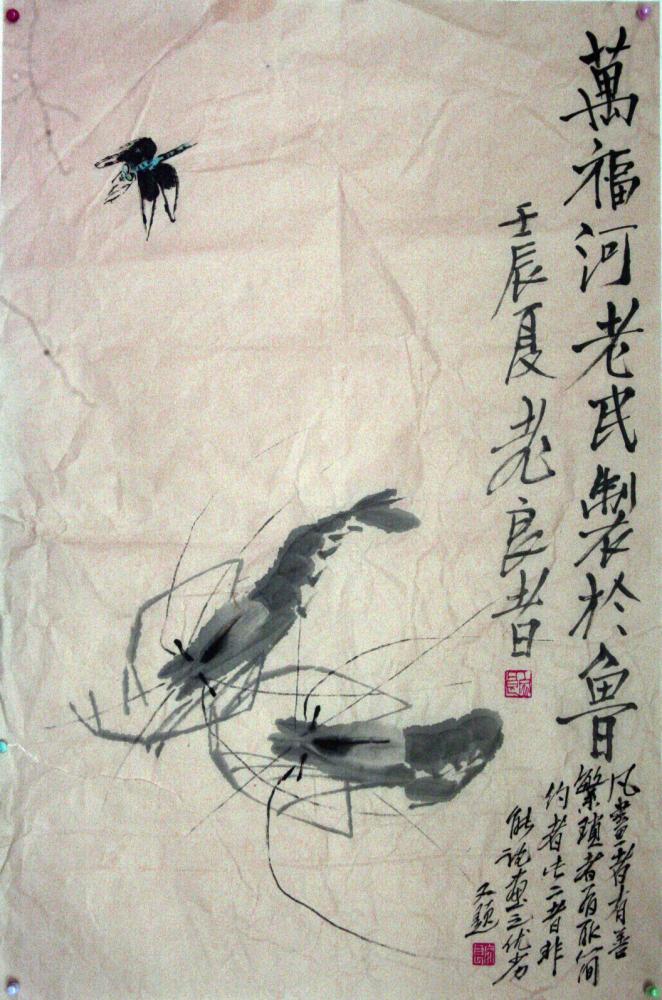 萬福河老民製於魯
壬辰夏老良者
凡畫者有善
繁瑣者有取簡
约者此二者非
能说画之优劣
又题